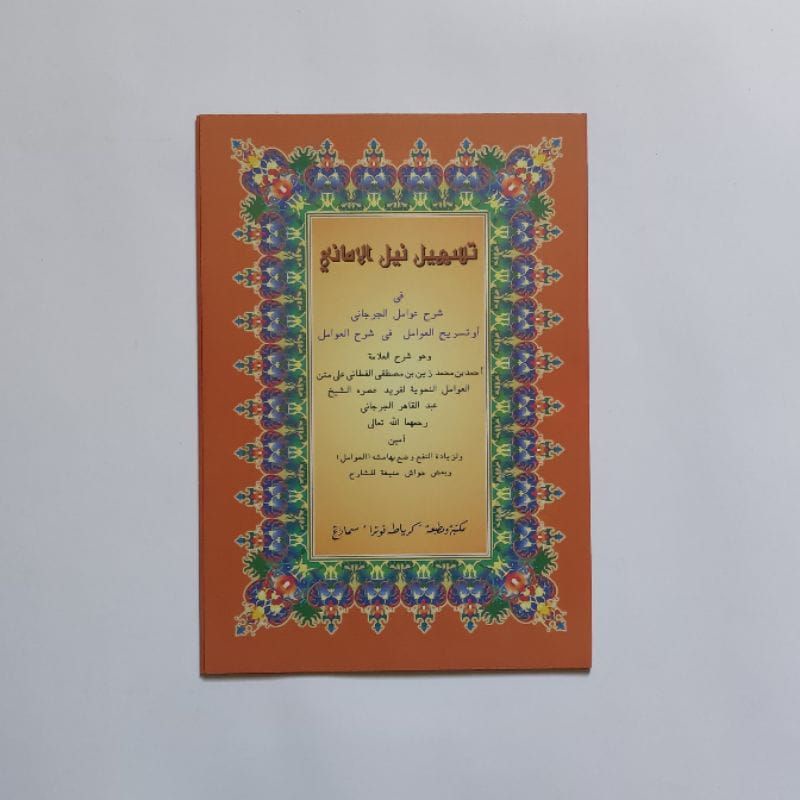 تسهيل نيل الاماني
فى
شرح عوامل الجرجاني
أوتسريح العوامل فى شرح العوامل
وهو شرح العلامة
أحمد بن محمد زين بن مصطفى الفطاني على متن
العوامل النحوية لفريد عصره الشيخ
عبد القاهر الجرجاني
رحمهما الله تعالى
أمين
ولزيادة النفع وضع بهامشه (العوامل)
وبعض حواش منيفة للشارح
مكتبة ومطبعة "كرياطه فوترا" سمارانج